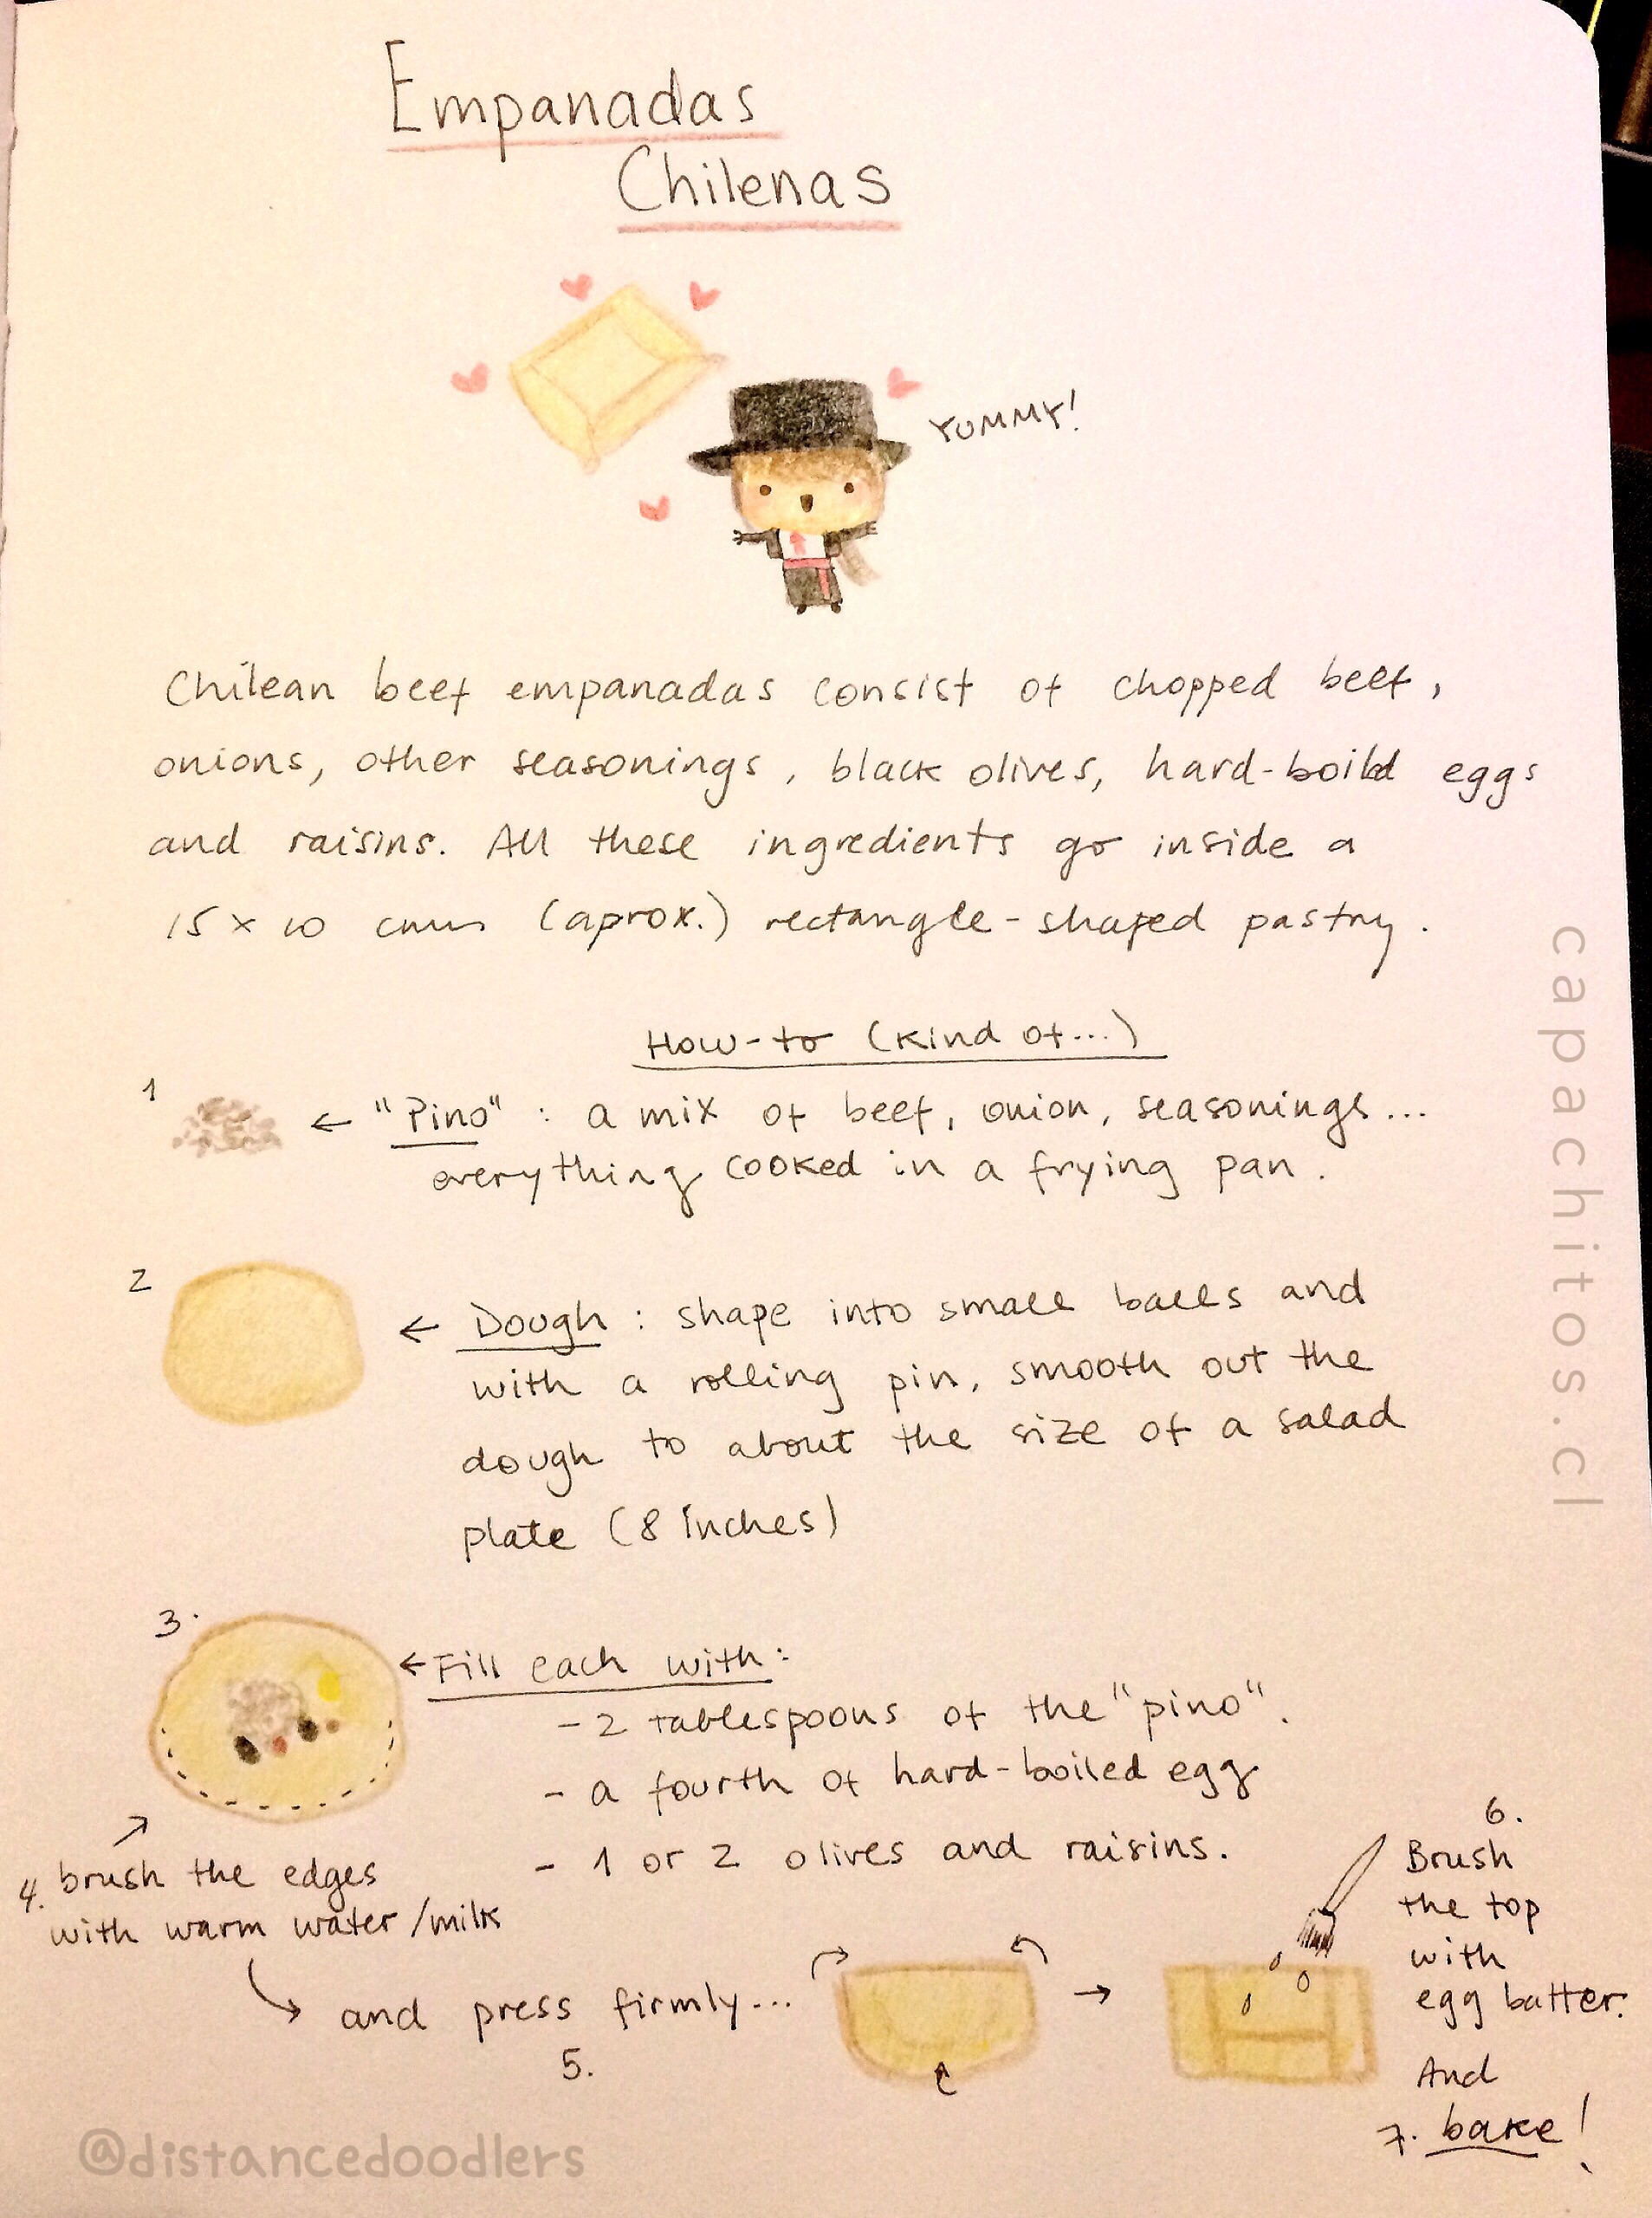 Empanadas
Chilenas
YUMMY!
Chilean beef empanadas consist of chopped beef,
onions, other seasonings, black olives, hard-boild eggs
and raisins. All these ingredients go inside a
15 x 10 cms (aprox.) rectangle-shaped pastry.
How-to (kind of...)
1
← "Pino" : a mix of beef, onion, seasonings...
everything cooked in a frying pan.
2
← Dough : shape into small balls and
with a rolling pin, smooth out the
dough to about the size of a salad
plate (8 inches)
3.
← Fill each with:
- 2 tablespoons of the "pino".
- a fourth of hard-boiled egg
- 1 or 2 olives and raisins.
4. brush the edges
with warm water/milk
and press firmly...
5.
6.
Brush
the top
with
egg batter.
And
7. bake!
capachitos.cl
@distancedoodlers